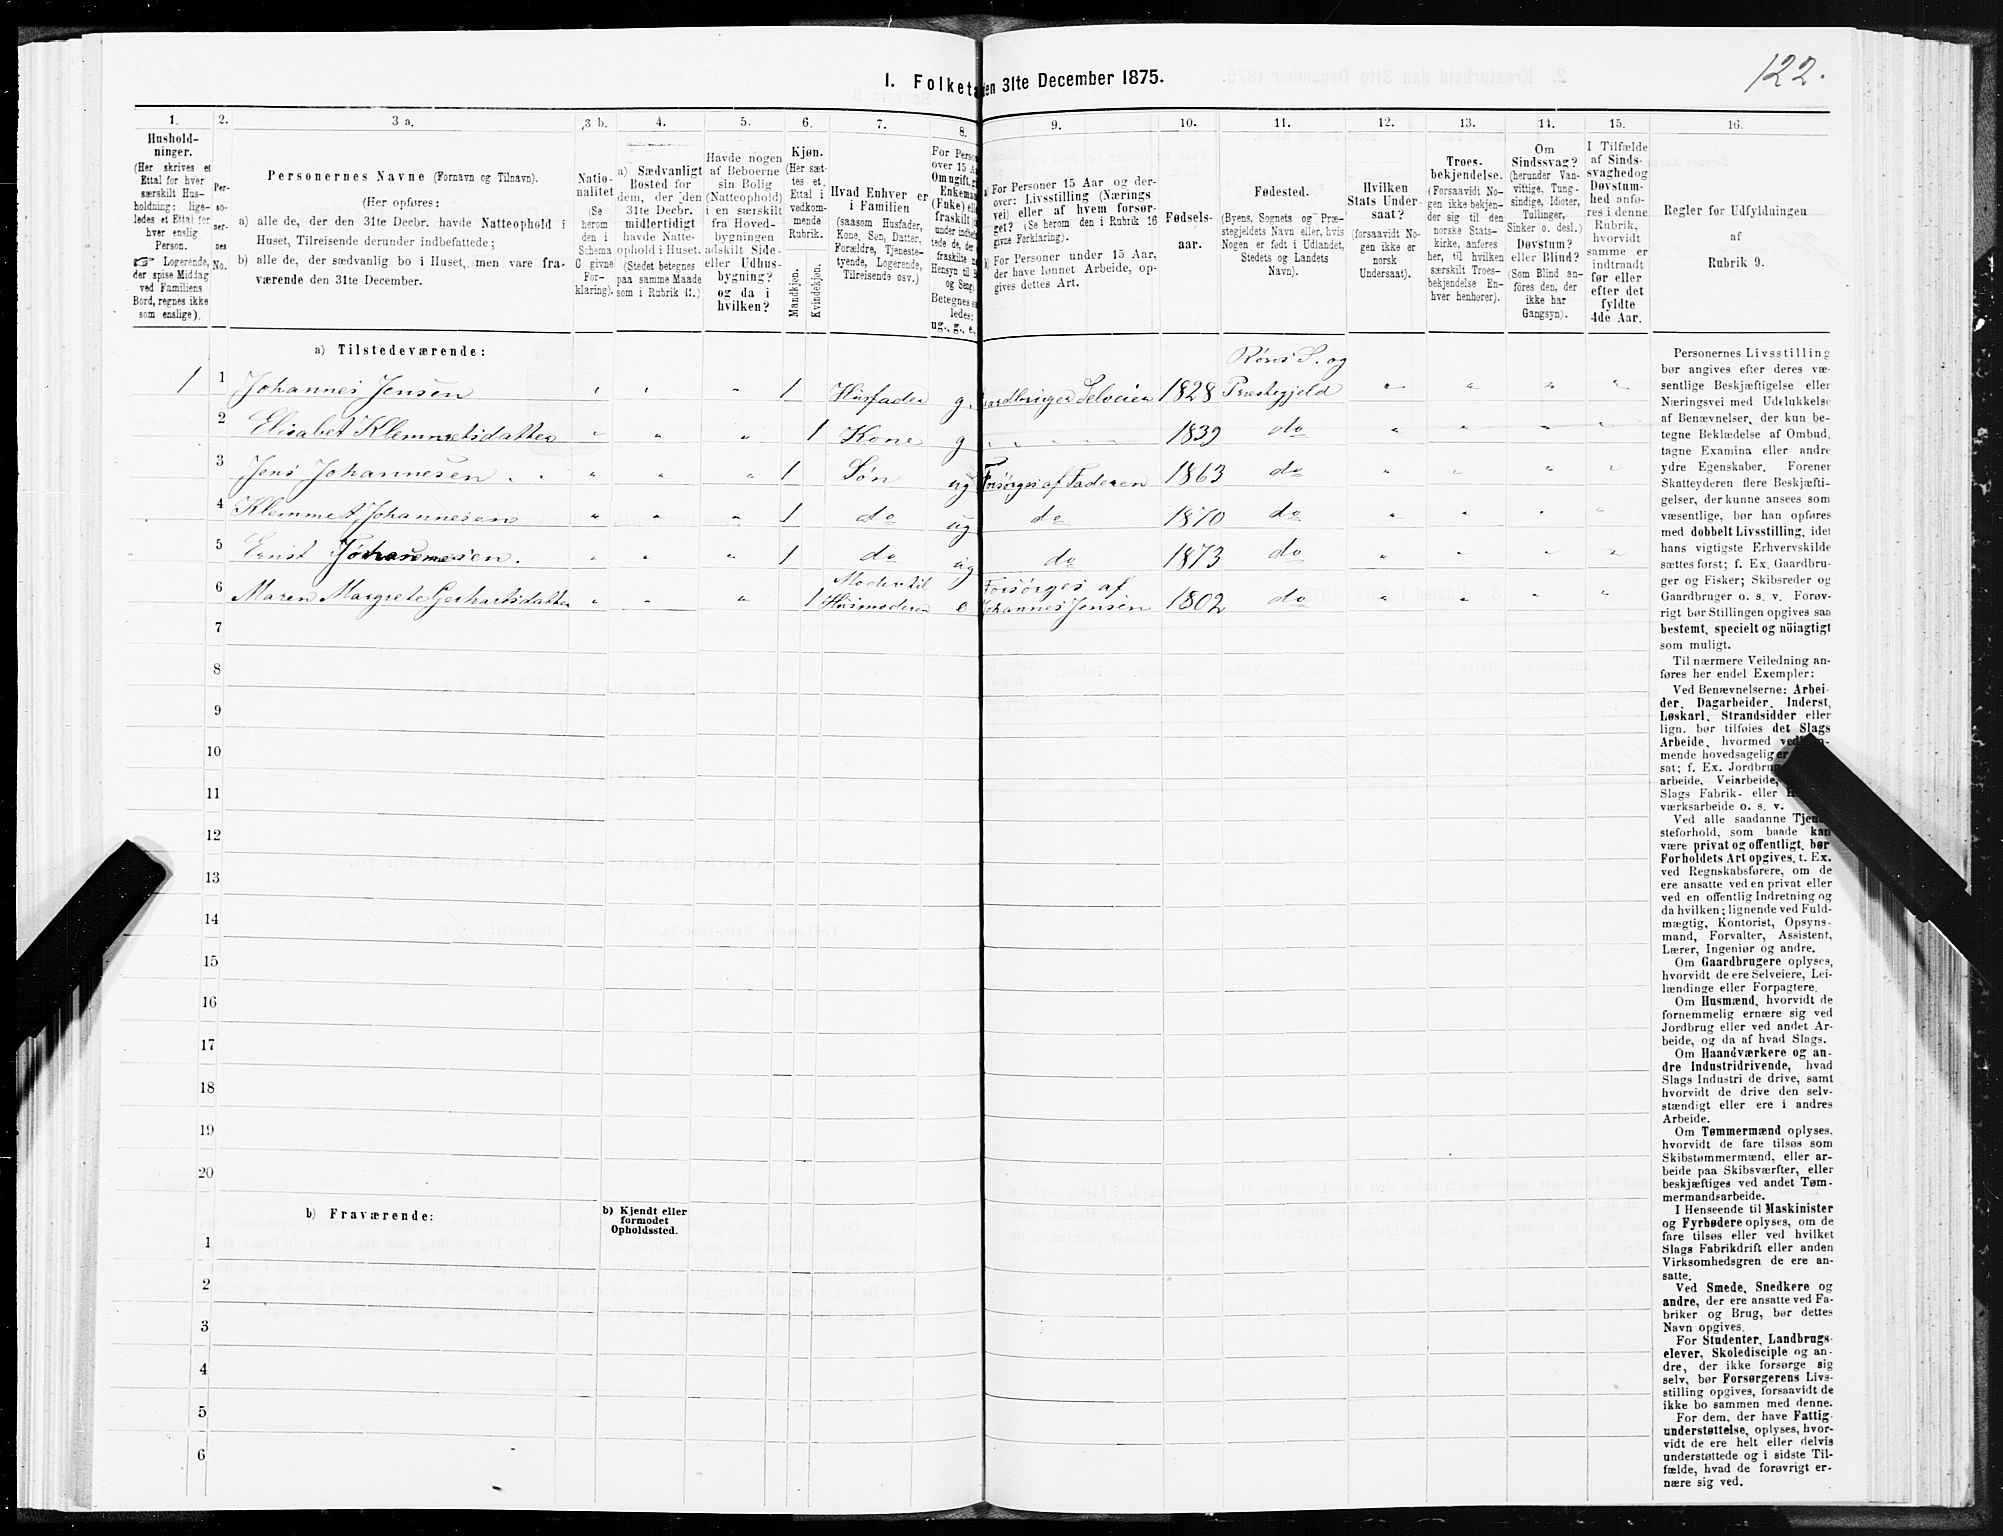 122.
I. Folketa en 31te December 1875.
1. 2. 3 a. 3 b. 4. 5. 6. 7. 8. 9. 10. 11. 12. 13. 14. 15. 16.
Hushold-
ninger.
(Her skrives et
Ettal for hver
særskilt Hus-
holdning; lige-
ledes et Ettal for
hver enslig
Person.
☞ Logerende,
der spise Middag
ved Familiens
Bord, regnes ikke
som enslige).
Per-
so-
ner-
nes
No.
Personernes Navne (Fornavn og Tilnavn).
(Her opføres:
a) alle de, der den 31te Decbr. havde Natteophold i
Huset, Tilreisende derunder indbefattede;
b) alle de, der sædvanlig bo i Huset, men vare fra-
værende den 31te December.
Natio-
nalitet
(Se
herom
den i
Schema
C givne
For-
klaring).
a) Sædvanligt
Bosted for
dem, der den
31te Decbr.
midlertidigt
havde Natte-
ophold i Huset.
(Stedet betegnes
paa samme Maade
som i Rubrik 11.)
Havde nogen
af Beboerne
sin Bolig
(Natteophold)
i en særskilt
fra Hoved-
bygningen
adskilt Side-
eller Udhus-
bygning?
og da i
hvilken?
Kjøn.
(Her sæt-
tes et
Ettal i
vedkom-
mende
Rubrik.
Mandkjøn.
Kvindekjøn.
Hvad Enhver er
i Familien
(saasom Husfader,
Kone, Søn, Datter,
Forældre, Tjeneste-
tyende, Logerende,
Tilreisende osv.)
For Perso
over 15 A
Om ugift, gi
Enkema
(Enke) elle
fraskilt (
under indbef
tede de, de
fraskilte
Hensyn til B
og Seng).
Betegnes s
ledes:
ug., g., e.
a) For Personer 15 Aar og der-
over: Livsstilling (Nærings
vei) eller af hvem forsør-
get? (Se herom den i Rubrik 16
givne Forklaring).
b) For Personer under 15 Aar,
der have lønnet Arbeide, op-
gives dettes Art.
Fødsels-
aar.
Fødested.
(Byens, Sognets og Præ-
stegjeldets Navn eller, hvis
Nogen er født i Udlandet,
Stedets og Landets
Navn).
Hvilken
Stats Under-
saat?
(forsaavidt No-
gen ikke er
norsk
Undersaat).
Troes-
bekjendelse.
(Forsaavidt No-
gen ikke bekjen-
der sig til den
norske Stats-
kirke, anføres
her, til hvilken
særskilt Troes-
bekjendelse En-
hver henhører).
Om
Sindssvag?
(herunder Van-
vittige, Tung-
sindige, Idioter,
Tullinger,
Sinker o. desl.)
Døvstum?
eller Blind?
(Som Blind an-
føres den, der
ikke har
Gangsyn).
I Tilfælde
af Sinds-
svaghed og
Døvstum-
hed anfø-
res i denne
Rubrik,
hvorvidt
samme er
indtraadt
før eller
efter det
fyldte
4de Aar.
Regler for Udfyldningen
af
Rubrik 9.
a) Tilstedeværende:
Røros S. og
1 1 Johannes Jensen " " " 1 Husfader g. aardbruger Selveier 1828 Præstegjeld " " " "
2 Elisabet Klemmetsdatter " " " 1 Kone g 1839 do " " " "
3 Jens Johannesen " " " 1 Søn ug Forsørges af Faderen 1863 do " " " "
4 Klemmet Johannesen " " " 1 do ug do 1870 do " " " "
5 Ernst Johannesen. " " " 1 do ug do 1873 do " " " "
Moder til Forsørges af
6 Maren Margrete Gerhartsdatter " " " 1 Husmoderen e Johannes Jensen 1802 do " " " "
7
8
9
10
11
12
13
14
15
16
17
18
19
20
b) Fraværende:
b) Kjendt eller
formodet
Opholdssted.
1
2
3
4
5
6
Personernes Livsstilling
bør angives efter deres væ-
sentlige Beskjæftigelse eller
Næringsvei med Udelukkelse
af Benævnelser, der kun be-
tegne Beklædelse af Ombud,
tagne Examina eller andre
ydre Egenskaber. Forener
Skatteyderen flere Beskjæfti-
gelser, der kunne ansees som
væsentlige, bør han opføres
med dobbelt Livsstilling, idet
hans vigtigste Erhvervskilde
sættes først; f. Ex. Gaardbru-
ger og Fisker; Skibsreder og
Gaardbruger o. s. v. Forøv-
rigt bør Stillingen opgives saa
bestemt, specielt og nöiagtigt
som muligt.
Til nærmere Veiledning an-
føres her endel Exempler:
Ved Benævnelserne: Arbei-
der, Dagarbeider, Inderst,
Løskarl, Strandsidder eller
lign. bør tilføies det Slags
Arbeide, hvormed
mende hovedsagelig er
sat; f. Ex. Jordbru
arbeide, Veiarbeide,
Slags Fabrik- eller
værksarbeide o. s. v.
Ved alle saadanne Tjen
steforhold, som baade kan
være privat og offentligt, bør
Forholdets Art opgives, t. Ex.
ved Regnskabsførere, om de
ere ansatte ved en privat eller
ved en offentlig Indretning og
da hvilken; lignende ved Fuld-
mægtig, Kontorist, Opsyns-
mand, Forvalter, Assistent,
Lærer, Ingeniør og andre.
Om Gaardbrugere oplyses,
hvorvidt de ere Selveiere, Lei-
lændinge eller Forpagtere.
Om Husmænd, hvorvidt de
fornemmelig ernære sig ved
Jordbrug eller ved andet Ar-
beide, og da af hvad Slags.
Om Haandværkere og an-
dre Industridrivende, hvad
Slags Industri de drive, samt
hvorvidt de drive den selv-
stændigt eller ere i andres
Arbeide.
Om Tømmermænd oplyses.
hvorvidt de fare tilsøs som
Skibstømmermænd, eller ar-
beide paa Skibsværfter, eller
beskjæftiges ved andet Tøm-
mermandsarbeide.
I Henseende til Maskinister
og Fyrbødere oplyses, om de
fare tilsøs eller ved hvilket
Slags Fabrikdrift eller anden
Virksomhedsgren de ere an-
satte.
Ved Smede, Snedkere og
andre, der ere ansatte ved Fa-
briker og Brug, bør dettes
Navn opgives.
For Studenter, Landbrugs-
elever, Skoledisciple og an-
dre, der ikke forsørge sig
selv, bør Forsørgerens Livs-
stilling opgives, forsaavidt de
ikke bo sammen med denne.
For dem, der have Fattig-
understøttelse, oplyses, hvor-
vidt de ere helt eller delvis
understøttede og i sidste Til-
fælde, hvad de forøvrigt er-
nære sig ved.